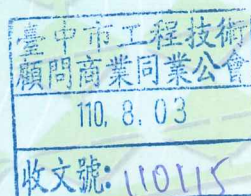 臺中市工程技術
顧問商業同業公會
110. 8. 03
收文號: 110115